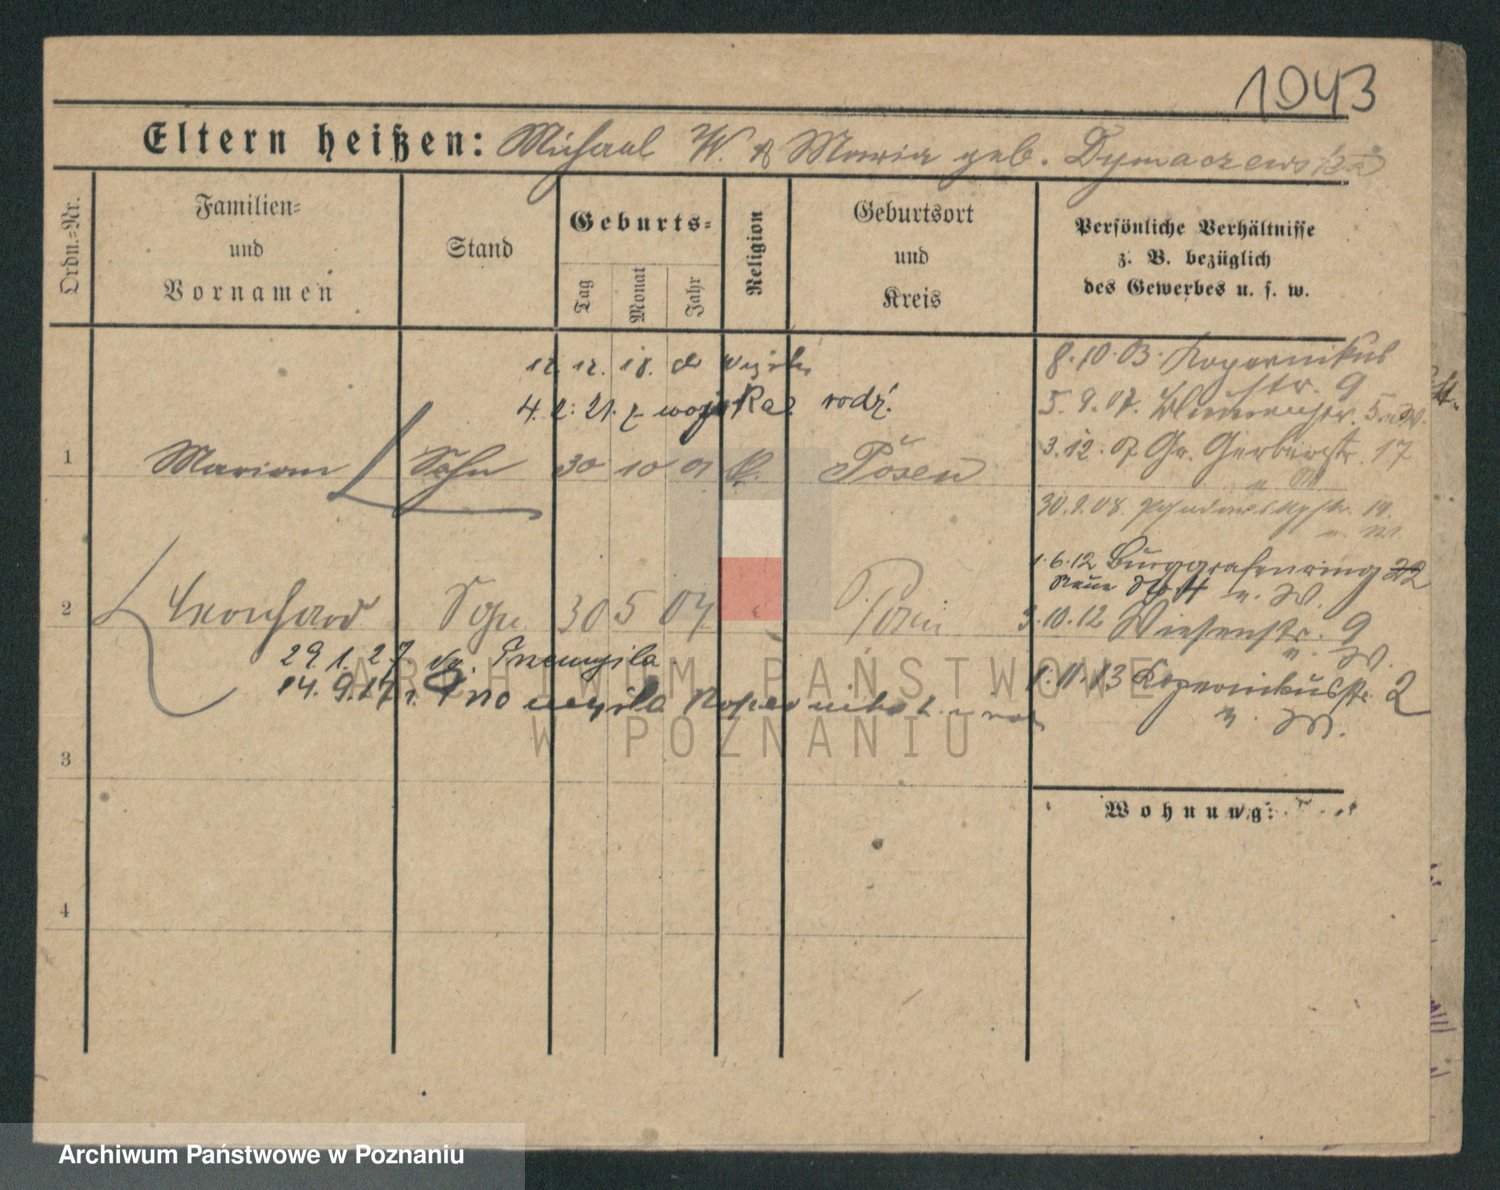 1943
Eltern heißen: Michael W. & Maria geb. Dymaczewska
Ordn.-Nr.
Familien-
und
Vornamen
Stand
Geburts-
Tag
Monat
Jahr
Religion
Geburtsort
und
Kreis
Persönliche Verhältnisse
z. B. bezüglich
des Gewerbes u. s. w.
12. 12. 18.
4. 2. 21. z wojska rodz.
1 Marian Sohn 30 10 01 k. Posen
2 Leonhard Sohn 30 5 04 Posen
29. 1. 27
14. 9. 27
3
4
8.10.03. Kopernikus
str. 9
5. 9. 07.
3.12.07 Gr. Gerberstr. 17
30.9.08.
1.6.12 Burggrafenring 22
n. W.
3.10.12 Wiesenstr. 9
n. W.
1.11.13 Kopernikusstr. 2
n. W.
Wohnung:
ARCHIWUM PAŃSTWOWE
W POZNANIU
Archiwum Państwowe w Poznaniu